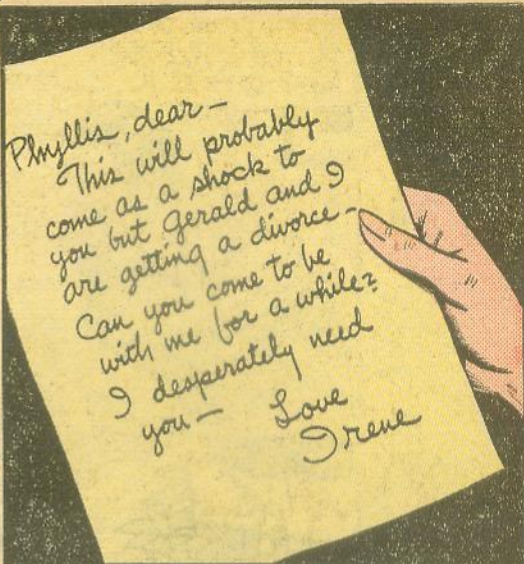 Phyllis, dear —
This will probably
come as a shock to
you but Gerald and I
are getting a divorce —
Can you come to be
with me for a while?
I desperately need
you — Love
Irene